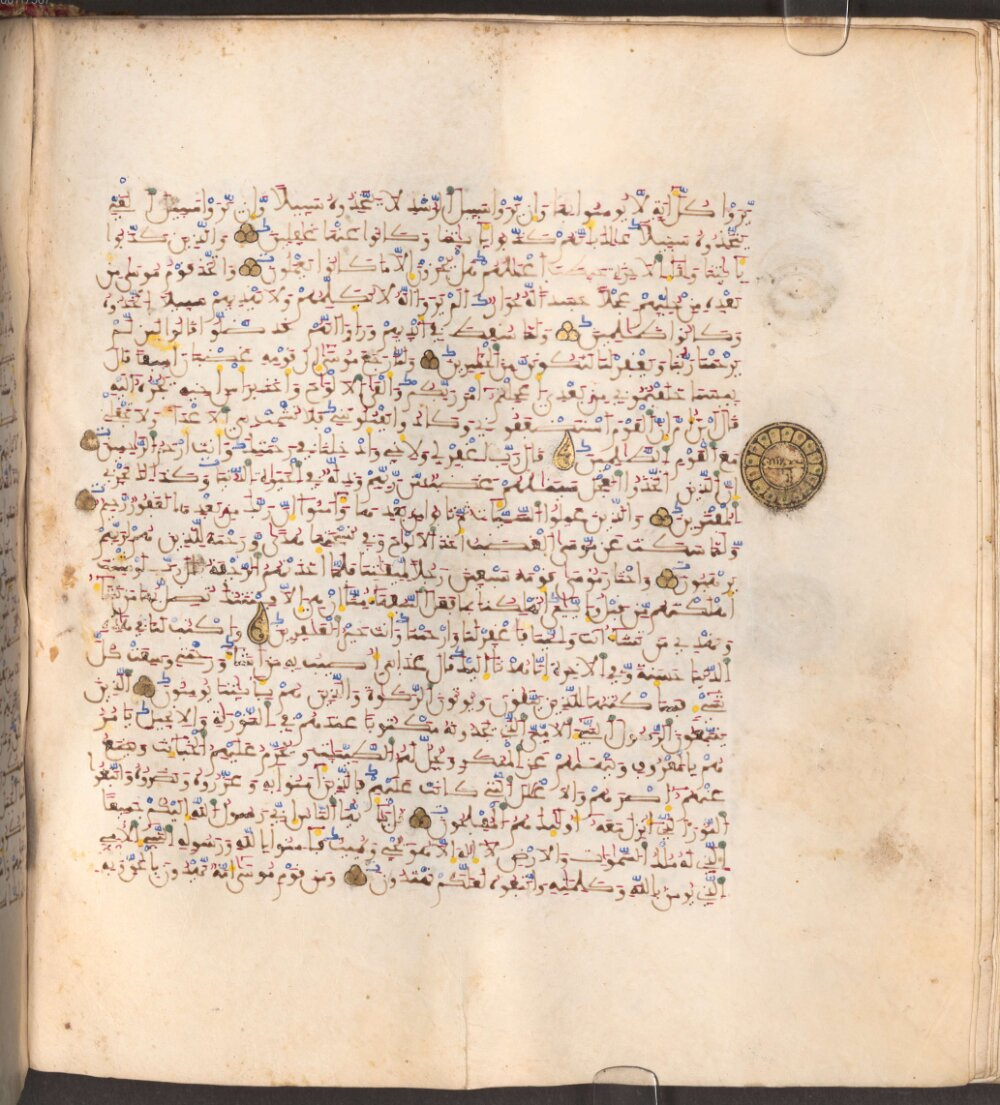 يروا كل ءاية لا يومنوا بها وان يروا سبيل الرشد لا يتخذوه سبيلا وان يروا سبيل الغي
يتخذوه سبيلا ذلك بانهم كذبوا بايتنا وكانوا عنها غفلين والذين كذبوا
بايتنا ولقاء الاخرة حبطت اعملهم هل يجزون الا ما كانوا يعملون واتخذ قوم موسى من
بعده من حليهم عجلا جسدا له خوار الم يروا انه لا يكلمهم ولا يهديهم سبيلا اتخذوه
وكانوا ظلمين ولما سقط في ايديهم وراوا انهم قد ضلوا قالوا لين لم
يرحمنا ربنا ويغفر لنا لنكونن من الخسرين ولما رجع موسى الى قومه غضبن اسفا قال
بيسما خلفتموني من بعدي اعجلتم امر ربكم والقى الالواح واخذ براس اخيه يجره اليه
قال ابن ام ان القوم استضعفوني وكادوا يقتلونني فلا تشمت بي الاعداء ولا تجعلني
مع القوم الظلمين قال رب اغفر لي ولاخي وادخلنا في رحمتك وانت ارحم الرحمين
ان الذين اتخذوا العجل سينالهم غضب من ربهم وذلة في الحيوة الدنيا وكذلك نجزي
المفترين والذين عملوا السيات ثم تابوا من بعدها وامنوا ان ربك من بعدها لغفور رحيم
ولما سكت عن موسى الغضب اخذ الالواح وفي نسختها هدى ورحمة للذين هم لربهم
يرهبون واختار موسى قومه سبعين رجلا لميقتنا فلما اخذتهم الرجفة قال رب لو شيت
اهلكتهم من قبل وايي اتهلكنا بما فعل السفهاء منا ان هي الا فتنتك تضل بها من تشاء
وتهدي من تشاء انت ولينا فاغفر لنا وارحمنا وانت خير الغفرين واكتب لنا في هذه
الدنيا حسنة وفي الاخرة انا هدنا اليك قال عذابي اصيب به من اشاء ورحمتي وسعت كل
شيء فساكتبها للذين يتقون ويوتون الزكوة والذين هم بايتنا يومنون الذين
يتبعون الرسول النبي الامي الذي يجدونه مكتوبا عندهم في التورية والانجيل يامر
هم بالمعروف وينهيهم عن المنكر ويحل لهم الطيبت ويحرم عليهم الخبيث ويضع
عنهم اصرهم والاغلل التي كانت عليهم فالذين امنوا به وعزروه ونصروه واتبعوا
النور الذي انزل معه اوليك هم المفلحون قل يايها الناس اني رسول الله اليكم جميعا
الذي له ملك السموات والارض لا اله الا هو يحي ويميت فامنوا بالله ورسوله النبي الامي
الذي يومن بالله وكلمته واتبعوه لعلكم تهتدون ومن قوم موسى امة يهدون بالحق وبه